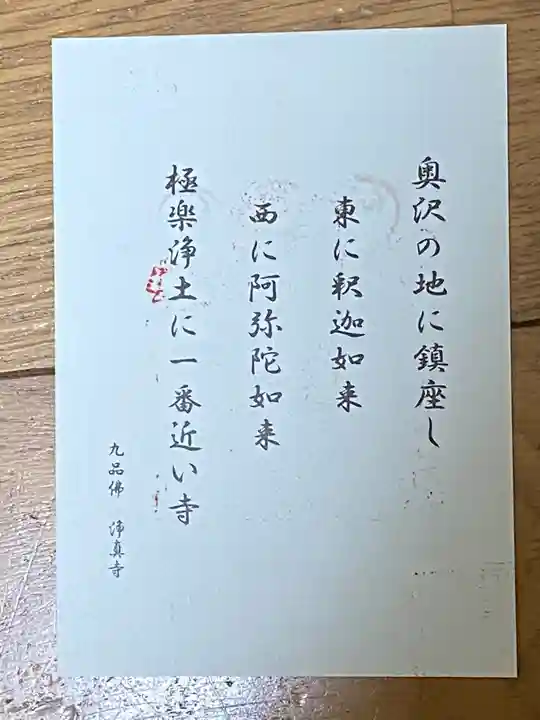 奥沢の地に鎮座し
東に釈迦如来
西に阿弥陀如来
極楽浄土に一番近い寺
九品佛 浄真寺